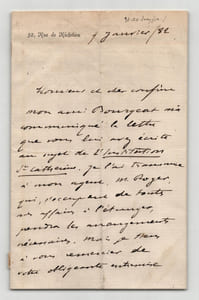 32, Rue de Richelieu
9 Janvier/82
Monsieur et cher confrère
mon ami Bourgeat m'a
communiqué la lettre
que vous lui avez écrite
au sujet de l'Institution
Ste Catherine, je l'ai transmise
à mon agent, M. Roger,
qui, s'occupant de toutes
mes affaires à l'étranger,
prendra les arrangements
nécessaires. Mais je tiens
à vous remercier de
votre obligeante entremise